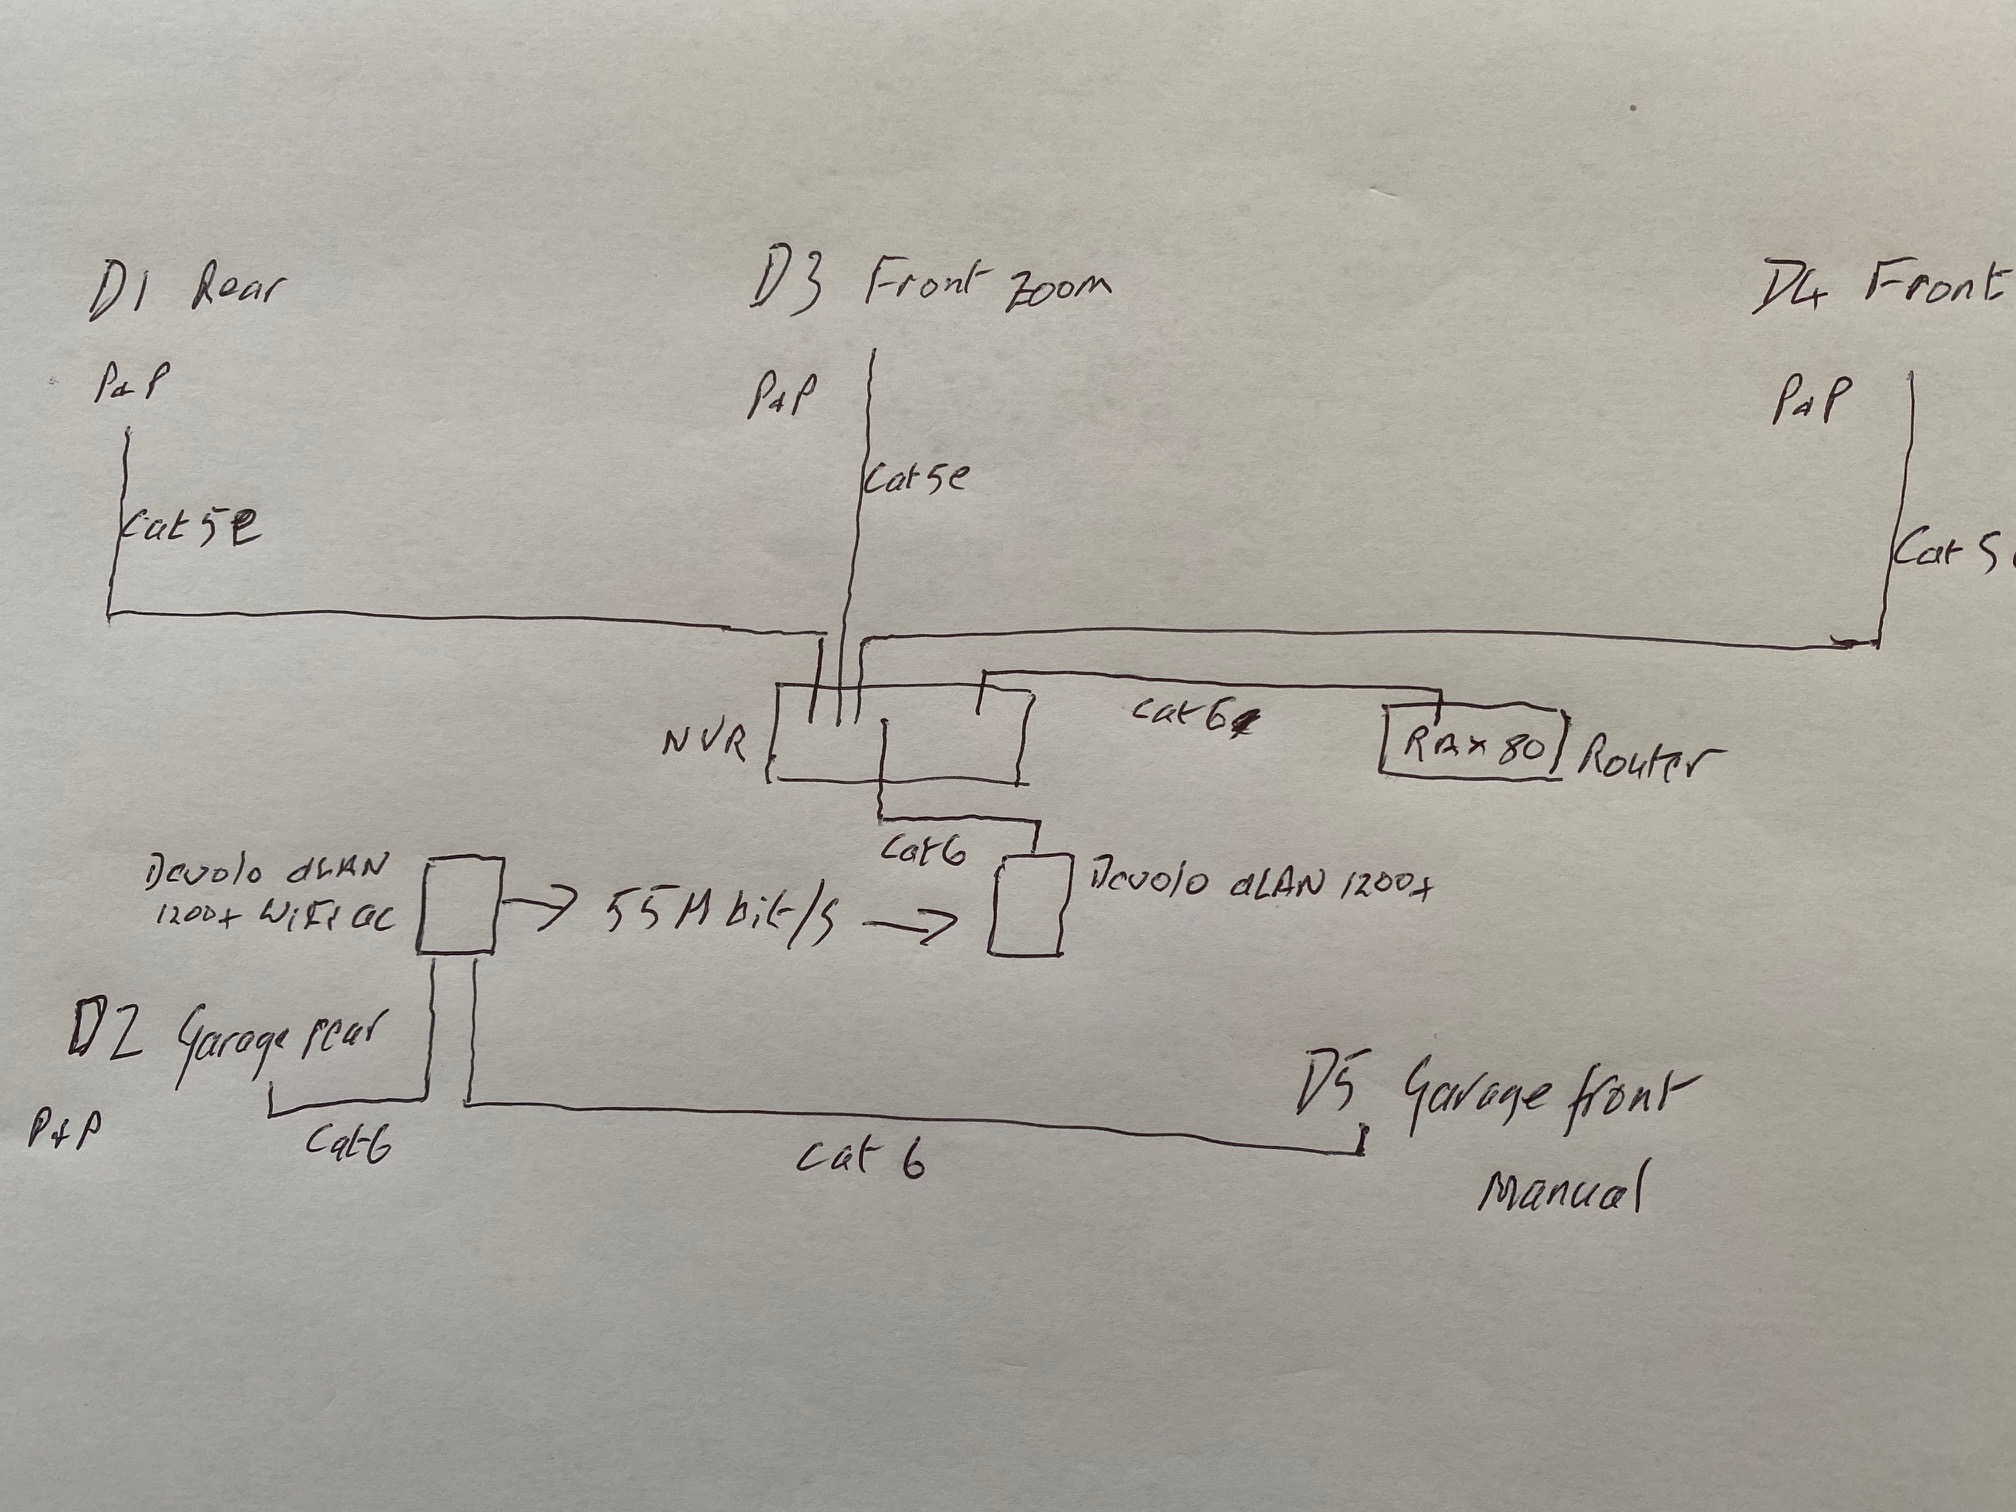 D1 Rear
D3 Front Zoom
D4 Front
P&P
P&P
P&P
Cat5e
Cat5e
Cat 5
NVR
Cat6
RAX80
Router
Cat6
Devolo dLAN
1200+ WiFi ac
55Mbit/s
Devolo dLAN 1200+
D2 Garage rear
P&P
Cat6
Cat 6
D5 Garage front
Manual